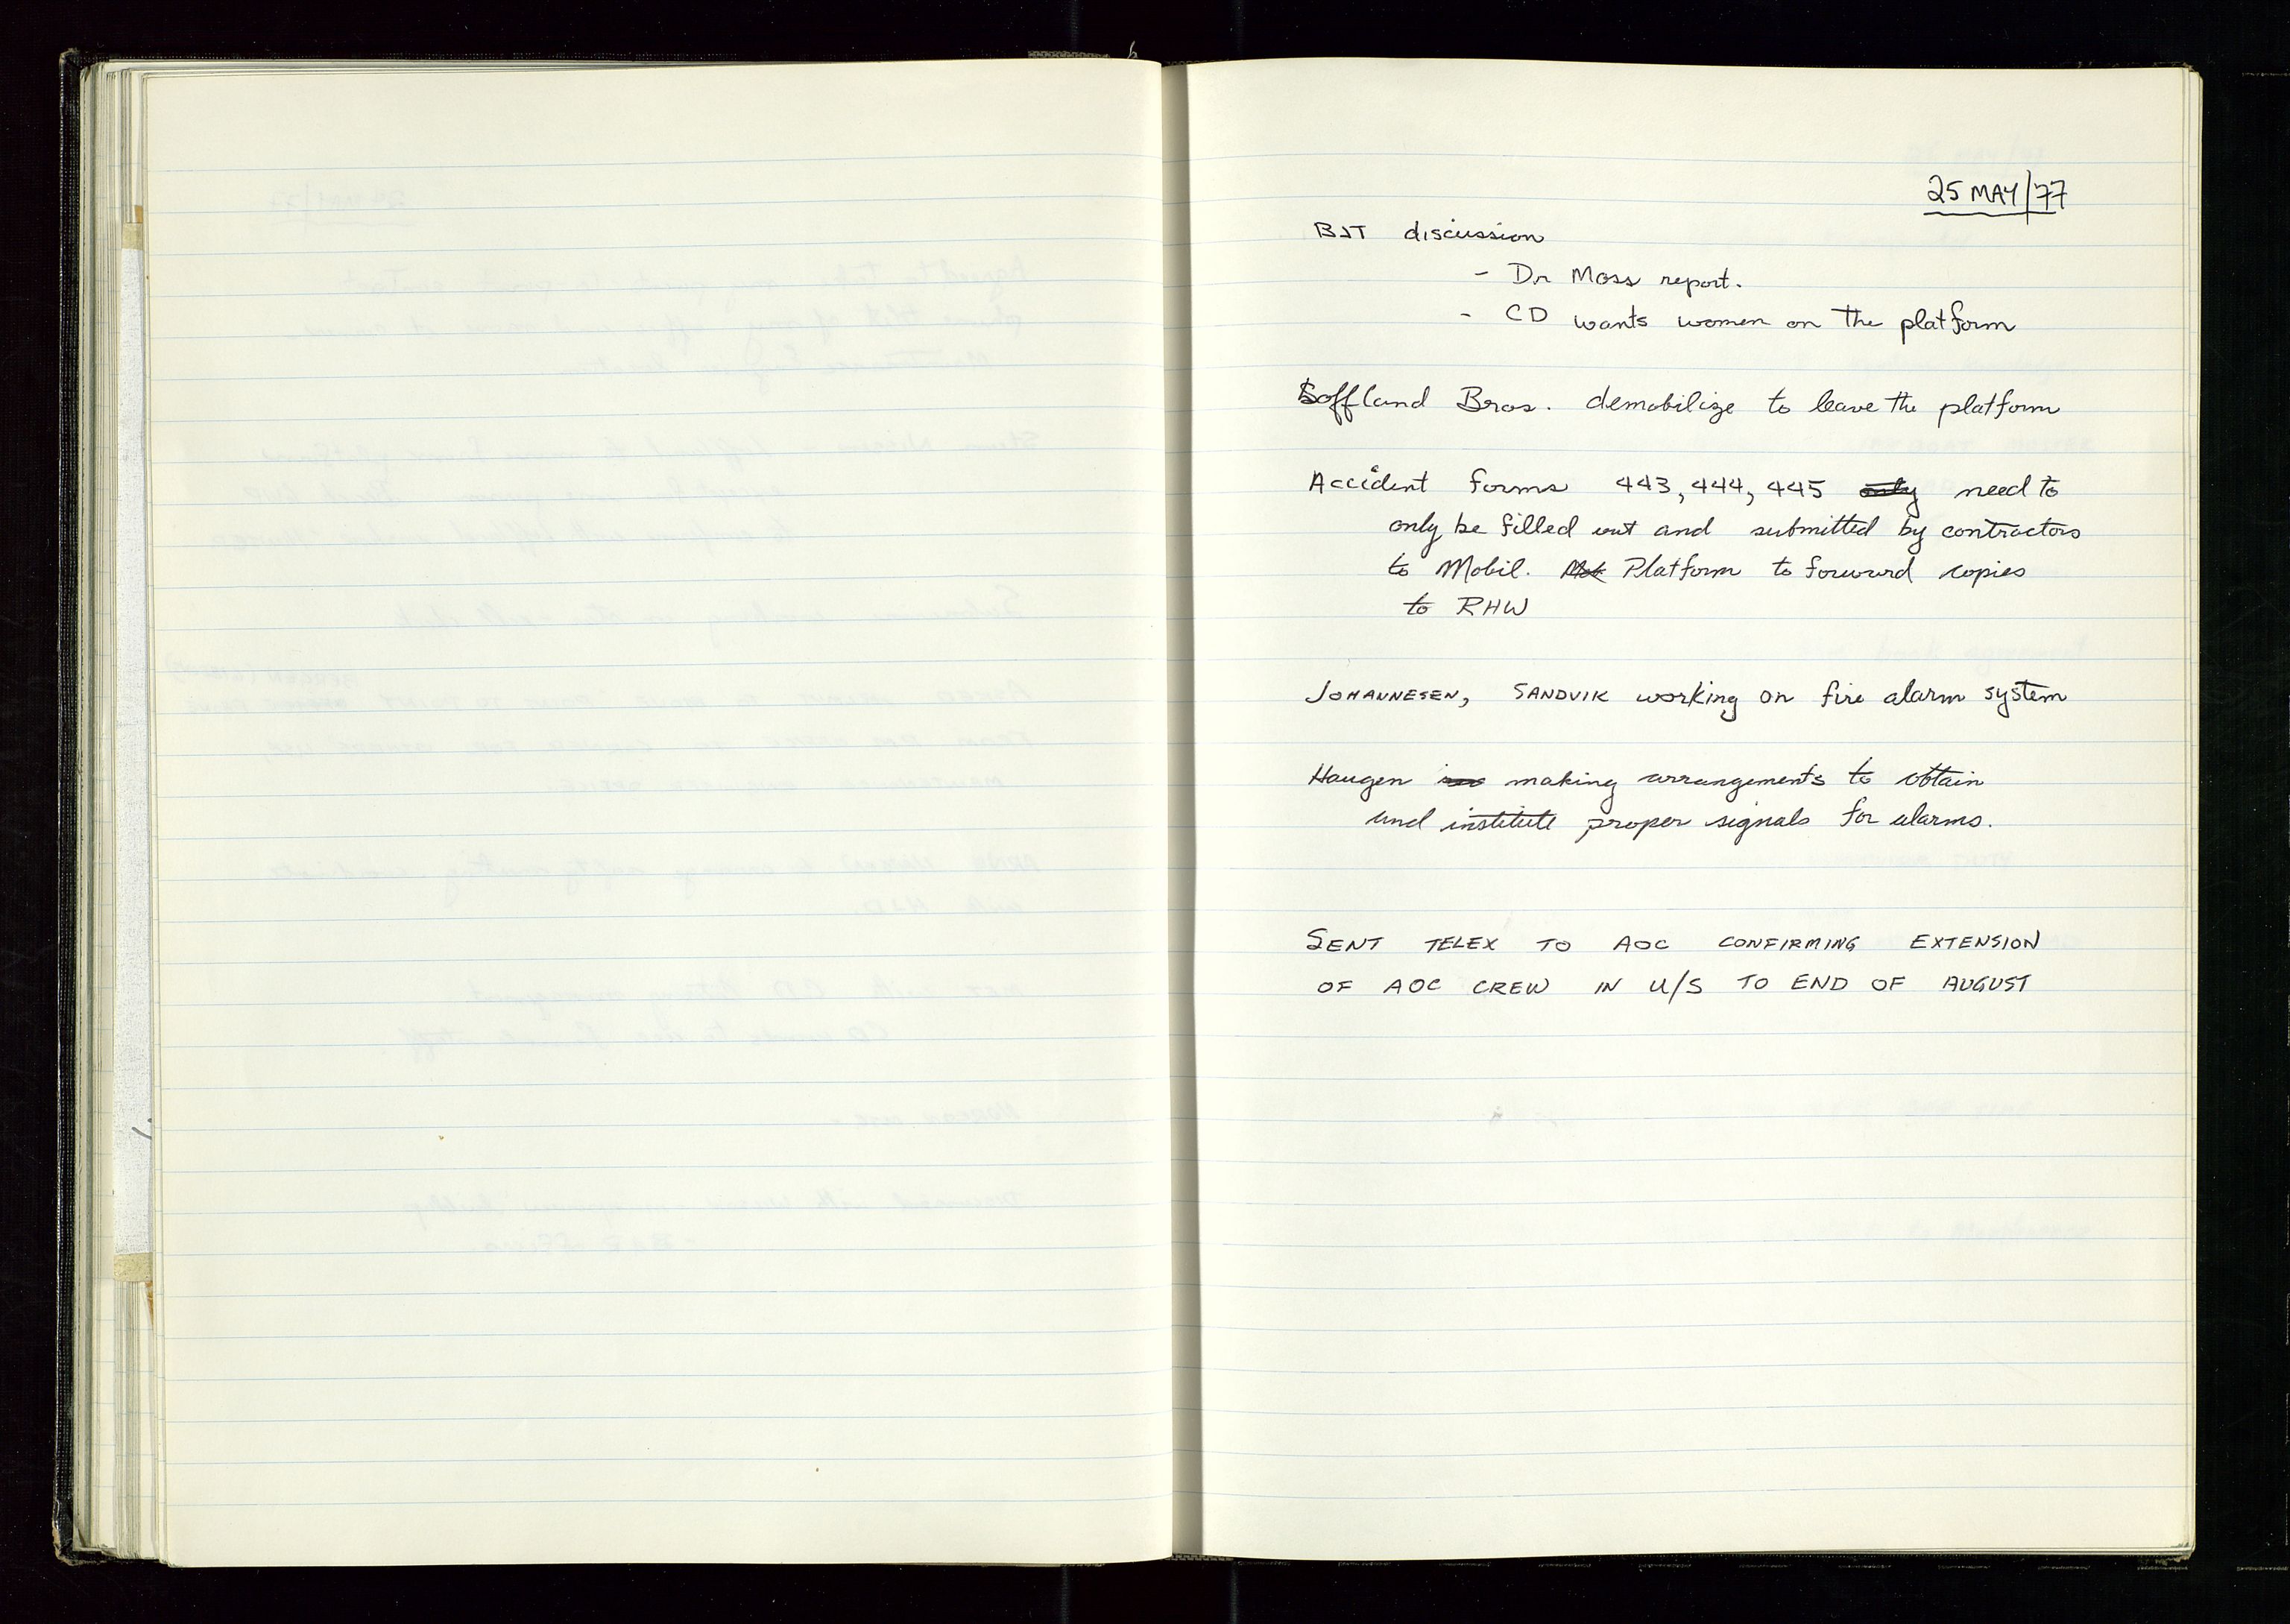 25 MAY/77
BJT discussion
- Dr Moss report.
- CD wants women on the platform
Loffland Bros. demobilize to leave the platform
Accident forms 443, 444, 445 only need to
only be filled out and submitted by contractors
to Mobil. Mob Platform to forward copies
to RHW
JOHANNESEN, SANDVIK working on fire alarm system
Haugen making arrangements to obtain
and institute proper signals for alarms.
SENT TELEX TO AOC CONFIRMING EXTENSION
OF AOC CREW IN U/S TO END OF AUGUST